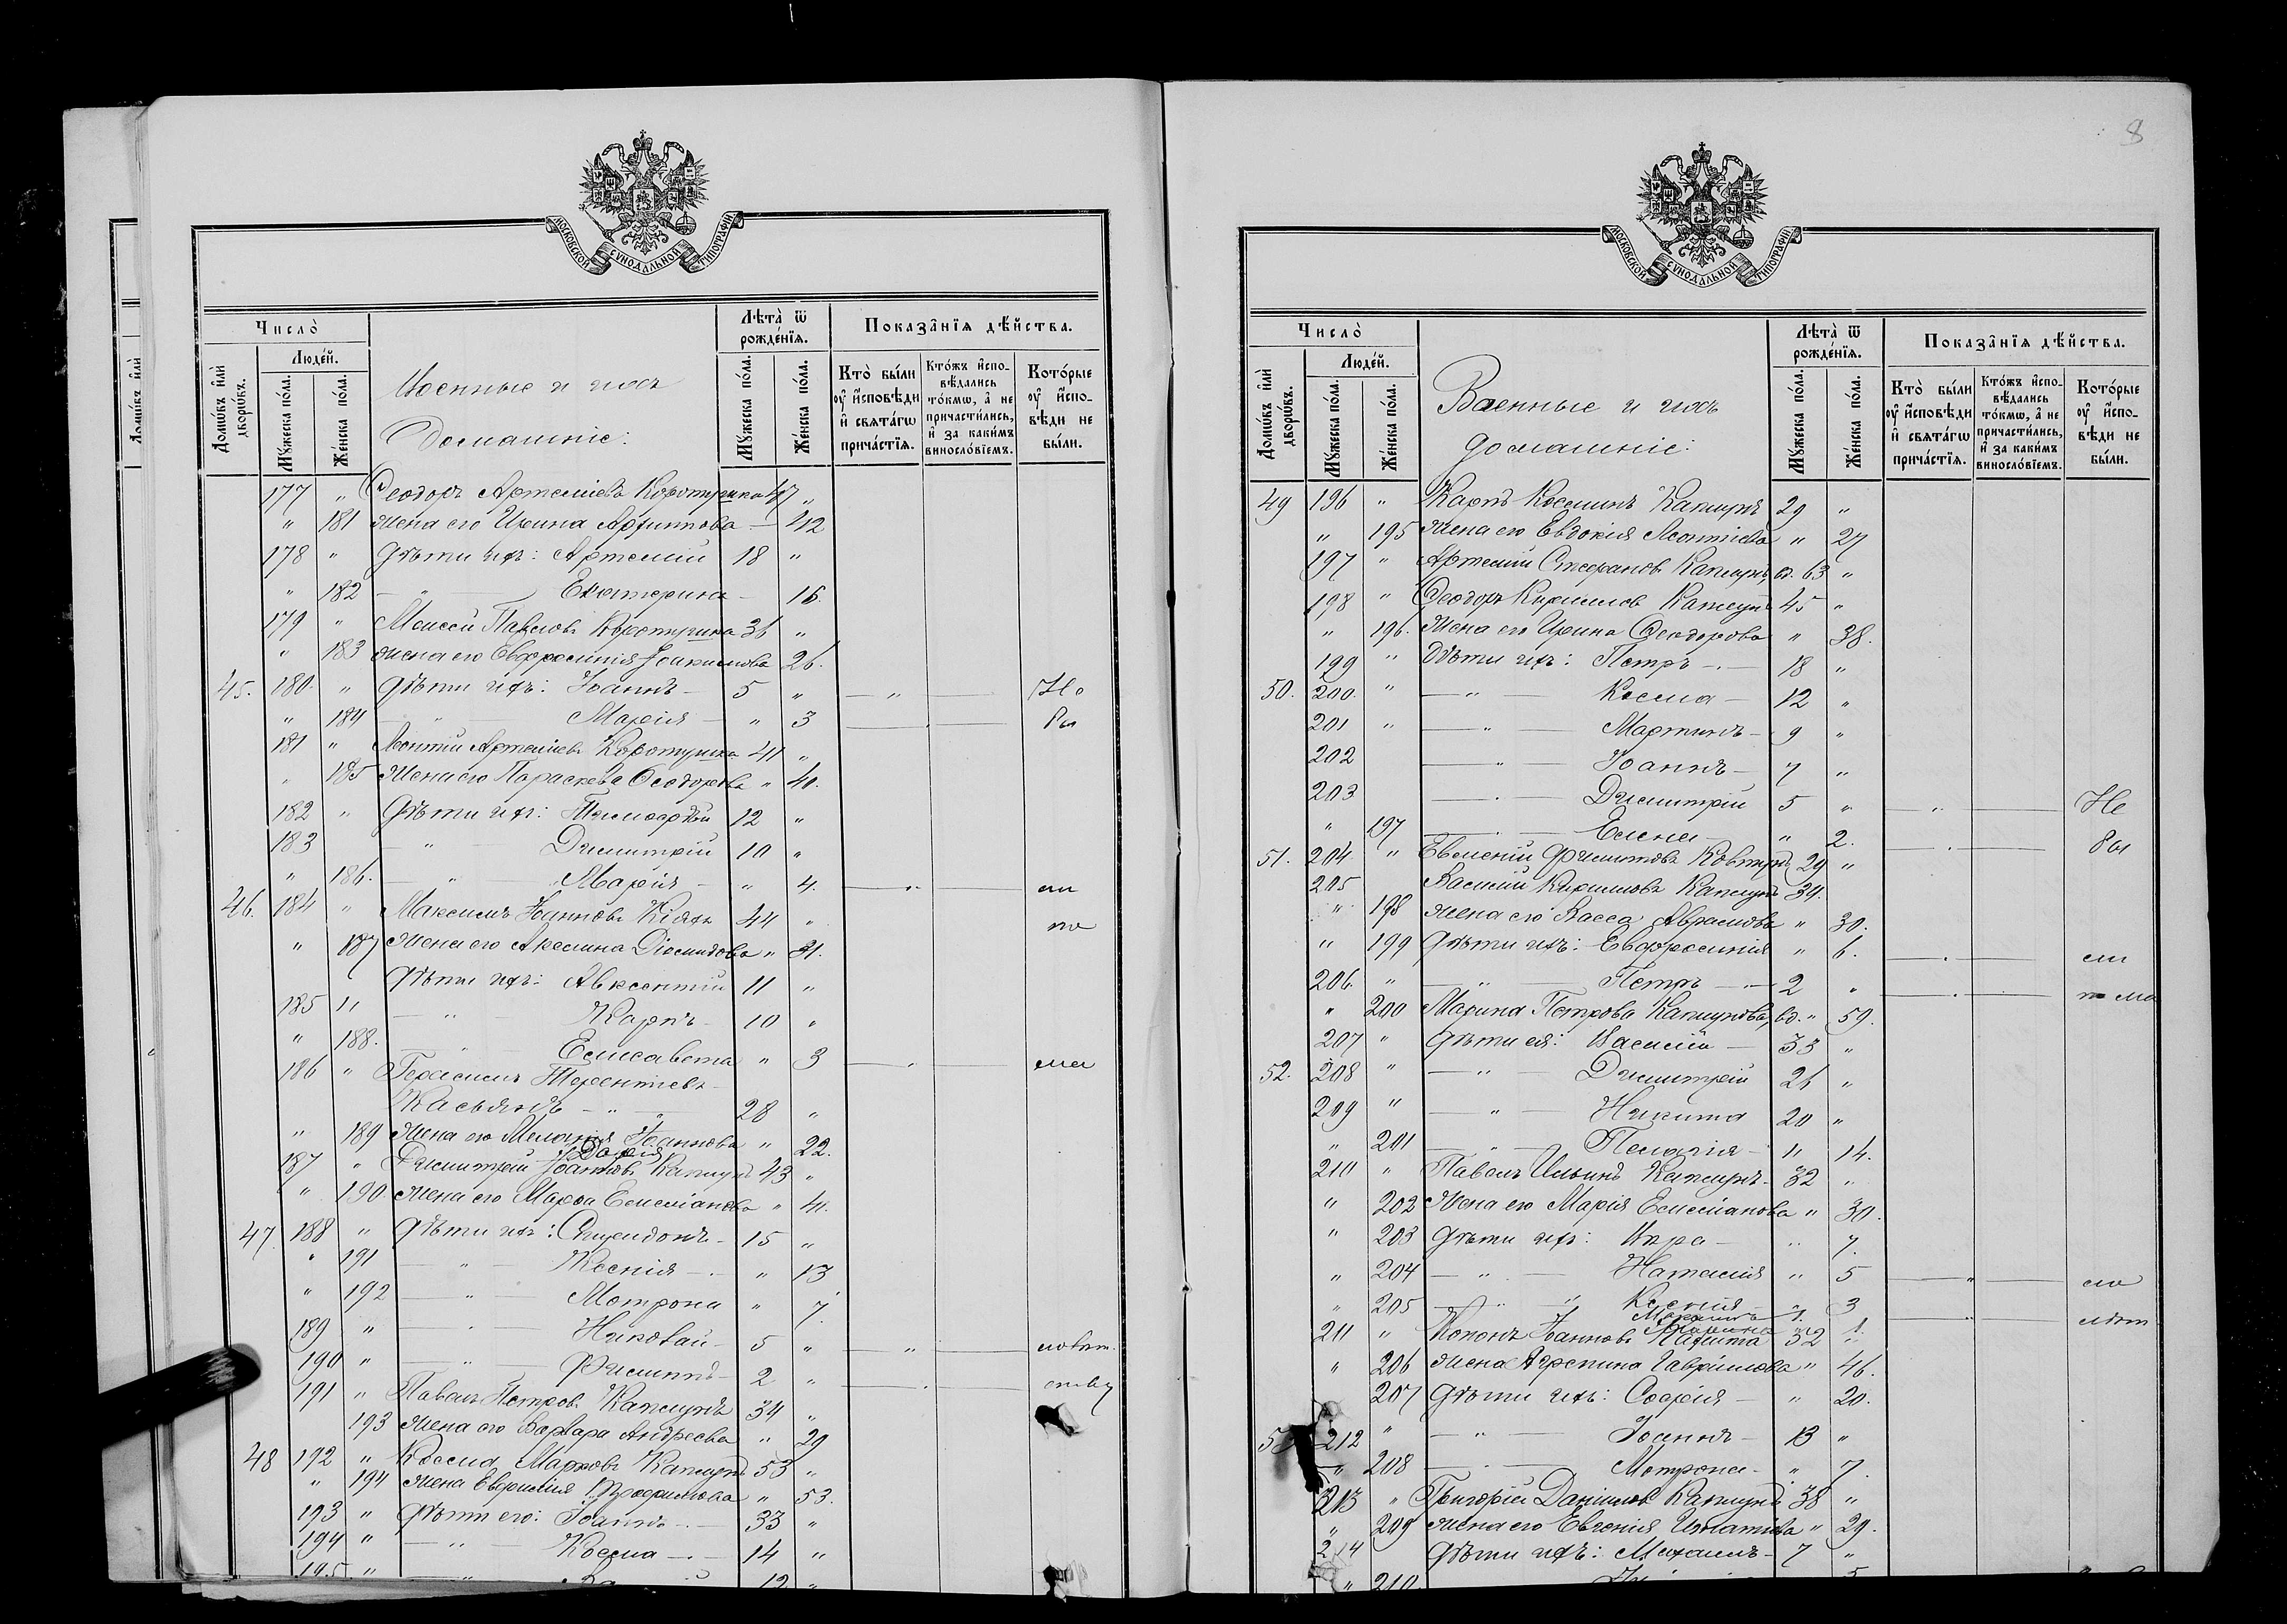 8
МОСКОВСКОЙ СУНОДАЛЬНОЙ ТИПОГРАФІИ
Число̀
Людéй.
Домѡ́въ и҆лѝ дворѡ́въ.
Мꙋ́жеска по́ла.
Же́нска по́ла.
Военные и ихъ
Домашніе:
Лѣта̀ ѿ рожде́нїѧ.
Мꙋ́жеска по́ла.
Же́нска по́ла.
Показа̑нїѧ дѣ́йства.
Кто̀ бы́ли оу҆ и҆сповѣ́ди и҆ свѧта́гѡ прича́стїѧ.
Кто́жъ и҆спо-вѣ́дались то́кмѡ, а҆ не причасти́лись, и҆ за каки́мъ винослóвїемъ.
Кото́рые оу҆ и҆спо-вѣ́ди не бы́ли.
177 " Ѳеодоръ Артеміевъ Коротушка 47 "
" 181 Жена его Ирина Архиппова — 42
178 " Дѣти ихъ: Артемій 18 "
" 182 — " — Екатерина — 16.
179 " Моисей Павловъ Коротушка 36 "
" 183 Жена его Евфросинія Іоакимова 26.
45. 180. " Дѣти ихъ: Іоаннъ — 5 " — " — Не
" 184 — " — Марія — " 3 — бы
181 " Леонтій Артеміевъ Коротушка 41 "
" 185 Жена его Параскева Ѳеодорова " 40.
182 " Дѣти ихъ: 12 "
183 — " — Димитрій 10 "
" 186. — " — Марія — " 4. — " — ли
46. 184 " Максимъ Іоанновъ 44 " по
" 187 Жена его Акилина Діомидова " 31.
Дѣти ихъ: Авксентій 11 "
185 " — " — Карпъ — 10 "
" 188. — " — Елисавета " 3 — " — ма
186 " Герасимъ Терентіевъ
Касьянъ — " — 28 "
" 189 Жена его Іоаннова " 22.
Дарія
187 " Димитрій Іоанновъ Капшукъ 43 "
" 190 Жена его Марѳа Емеліанова " 41.
47. 188 " Дѣти ихъ: Спиридонъ — 15 "
" 191 — " — Ксенія — " 13
" 192 — " — Мотрона " 7.
189 " — " — Николай — 5 " — " — лолѣт.
190 " — " — Филиппъ 2 " — ству
191 " Павелъ Петровъ Капшукъ 34 "
193 Жена его Варвара Андреева " 29
48 192 " Косма Марковъ Капшукъ 53 "
" 194 Жена Евфимія Трофимова " 53.
193 " Дѣти его: Іоаннъ — 33 "
194 " — " — Косма — 14 "
195 " — " — 12 "
МОСКОВСКОЙ СУНОДАЛЬНОЙ ТИПОГРАФІИ
Число̀
Людéй.
Домѡ́въ и҆лѝ дворѡ́въ.
Мꙋ́жеска по́ла.
Же́нска по́ла.
Военные и ихъ
домашніе:
Лѣта̀ ѿ рожде́нїѧ.
Мꙋ́жеска по́ла.
Же́нска по́ла.
Показа̑нїѧ дѣ́йства.
Кто̀ бы́ли оу҆ и҆сповѣ́ди и҆ свѧта́гѡ прича́стїѧ.
Кто́жъ и҆спо-вѣ́дались то́кмѡ, а҆ не причасти́лись, и҆ за каки́мъ винослóвїемъ.
Кото́рые оу҆ и҆спо-вѣ́ди не бы́ли.
49 196 " Карпъ Косминъ Капшукъ 29 "
" 195 Жена его Евдокія Леонтіева " 27
197 " Артемій Стефановъ Капшукъ, вд. 63 "
198 " Ѳеодоръ Кирилловъ Капшукъ 45 "
" 196. Жена его Ирина Ѳеодорова " 38.
199 " Дѣти ихъ: Петръ — 18 "
50. 200. " — " — Косма — 12 "
201 " — " — Мартинъ — 9 "
202 — " — Іоаннъ — 7 "
203 — " — Димитрій 5 " — " — Не
" 197 — Елена — " 2. — бы
51. 204 " Евменій Филипповъ 29 "
205 Василій Кирилловъ Капшукъ 34.
" 198 Жена его Васса Аврамова " 30.
" 199 Дѣти ихъ: Евфросинія " 6. — ли
206. " — " — Петръ — 2 " — по ма
" 200 Марина Петрова Капшукова, вд. " 59.
207 " Дѣти ея: Василій — 33 "
52. 208 " — " — Димитрій 26 "
209 " — " — Никита 20 "
" 201 — " — Пелагія — " 14.
210 " Павелъ Ильинъ Капшукъ — 32 "
" 202 Жена его Марія Емеліанова " 30.
" 203 Дѣти ихъ: Кира — " 7.
" 204 — " — Наталія " 5 — " — ло
" 205 — " — Ксенія — " 3
1. — " — лѣт
211 " Кононъ Іоанновъ 52 "
" 206 Жена Агрепина Гавриилова " 46.
207 Дѣти ихъ: Софія — " 20.
53 212 " — " — Іоаннъ — 13 "
" 208 — " — Мотрона — " 7.
213 " Григорій Даніиловъ Капшукъ 38 "
" 209 Жена его Евгенія Игнатіева " 29.
214 Дѣти ихъ: Михаилъ — 7 "
" 210 5